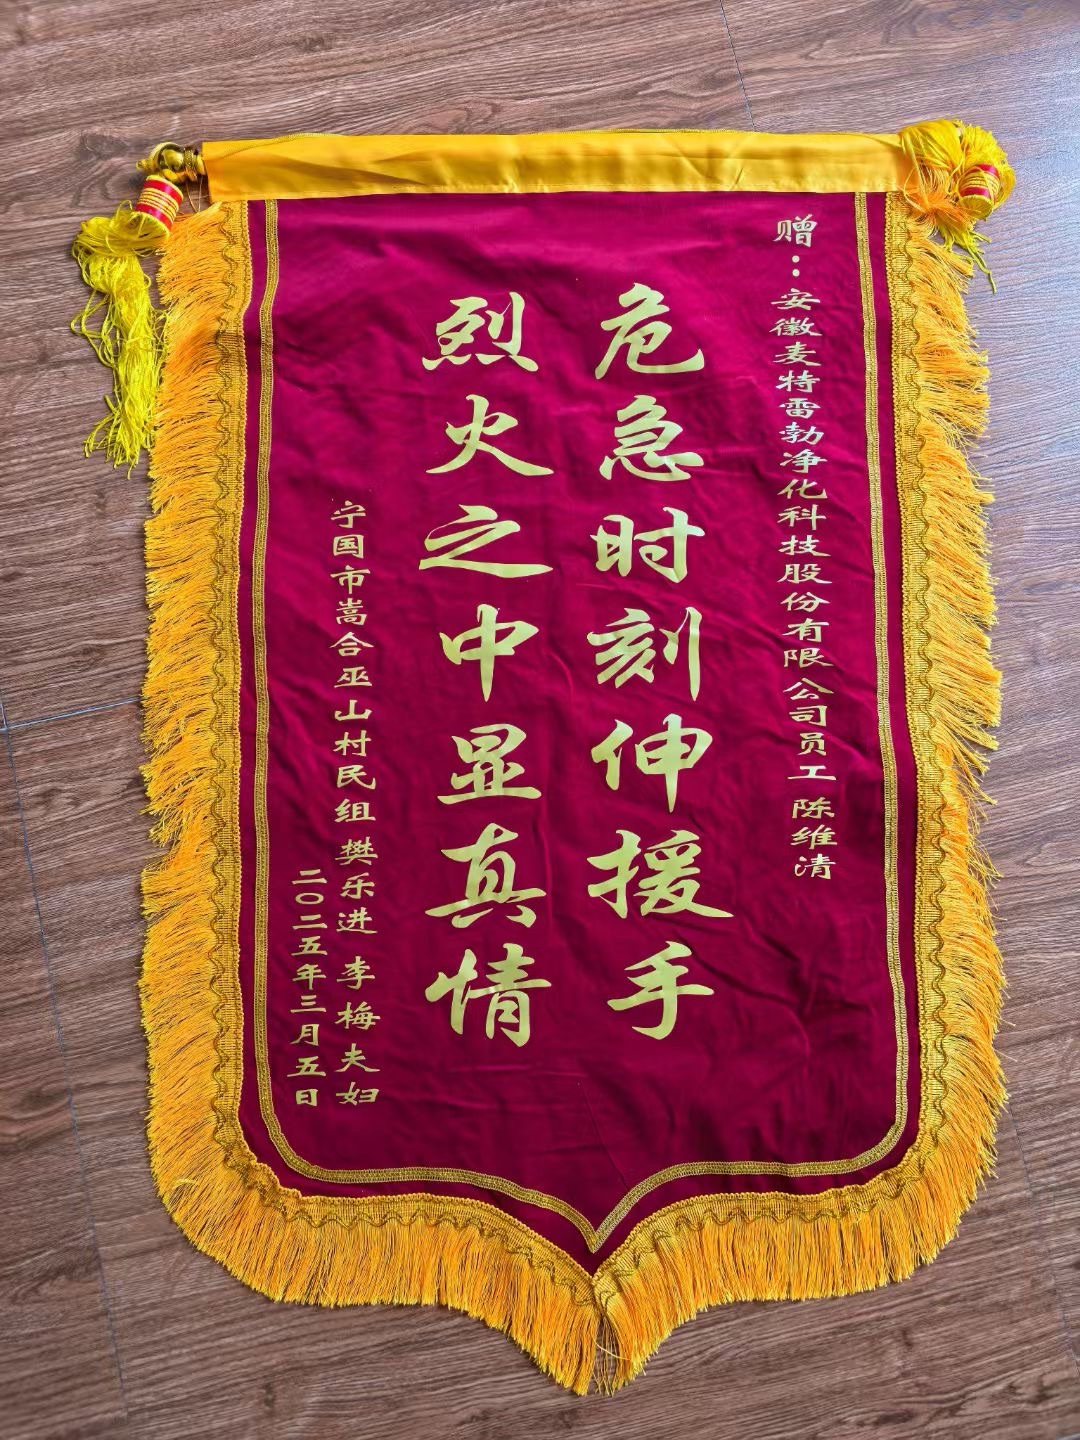 赠：安徽麦特雷勃净化科技股份有限公司员工 陈维清
危急时刻伸援手
烈火之中显真情
宁国市嵩合巫山村民组 樊乐进 李梅夫妇
二〇二五年三月五日